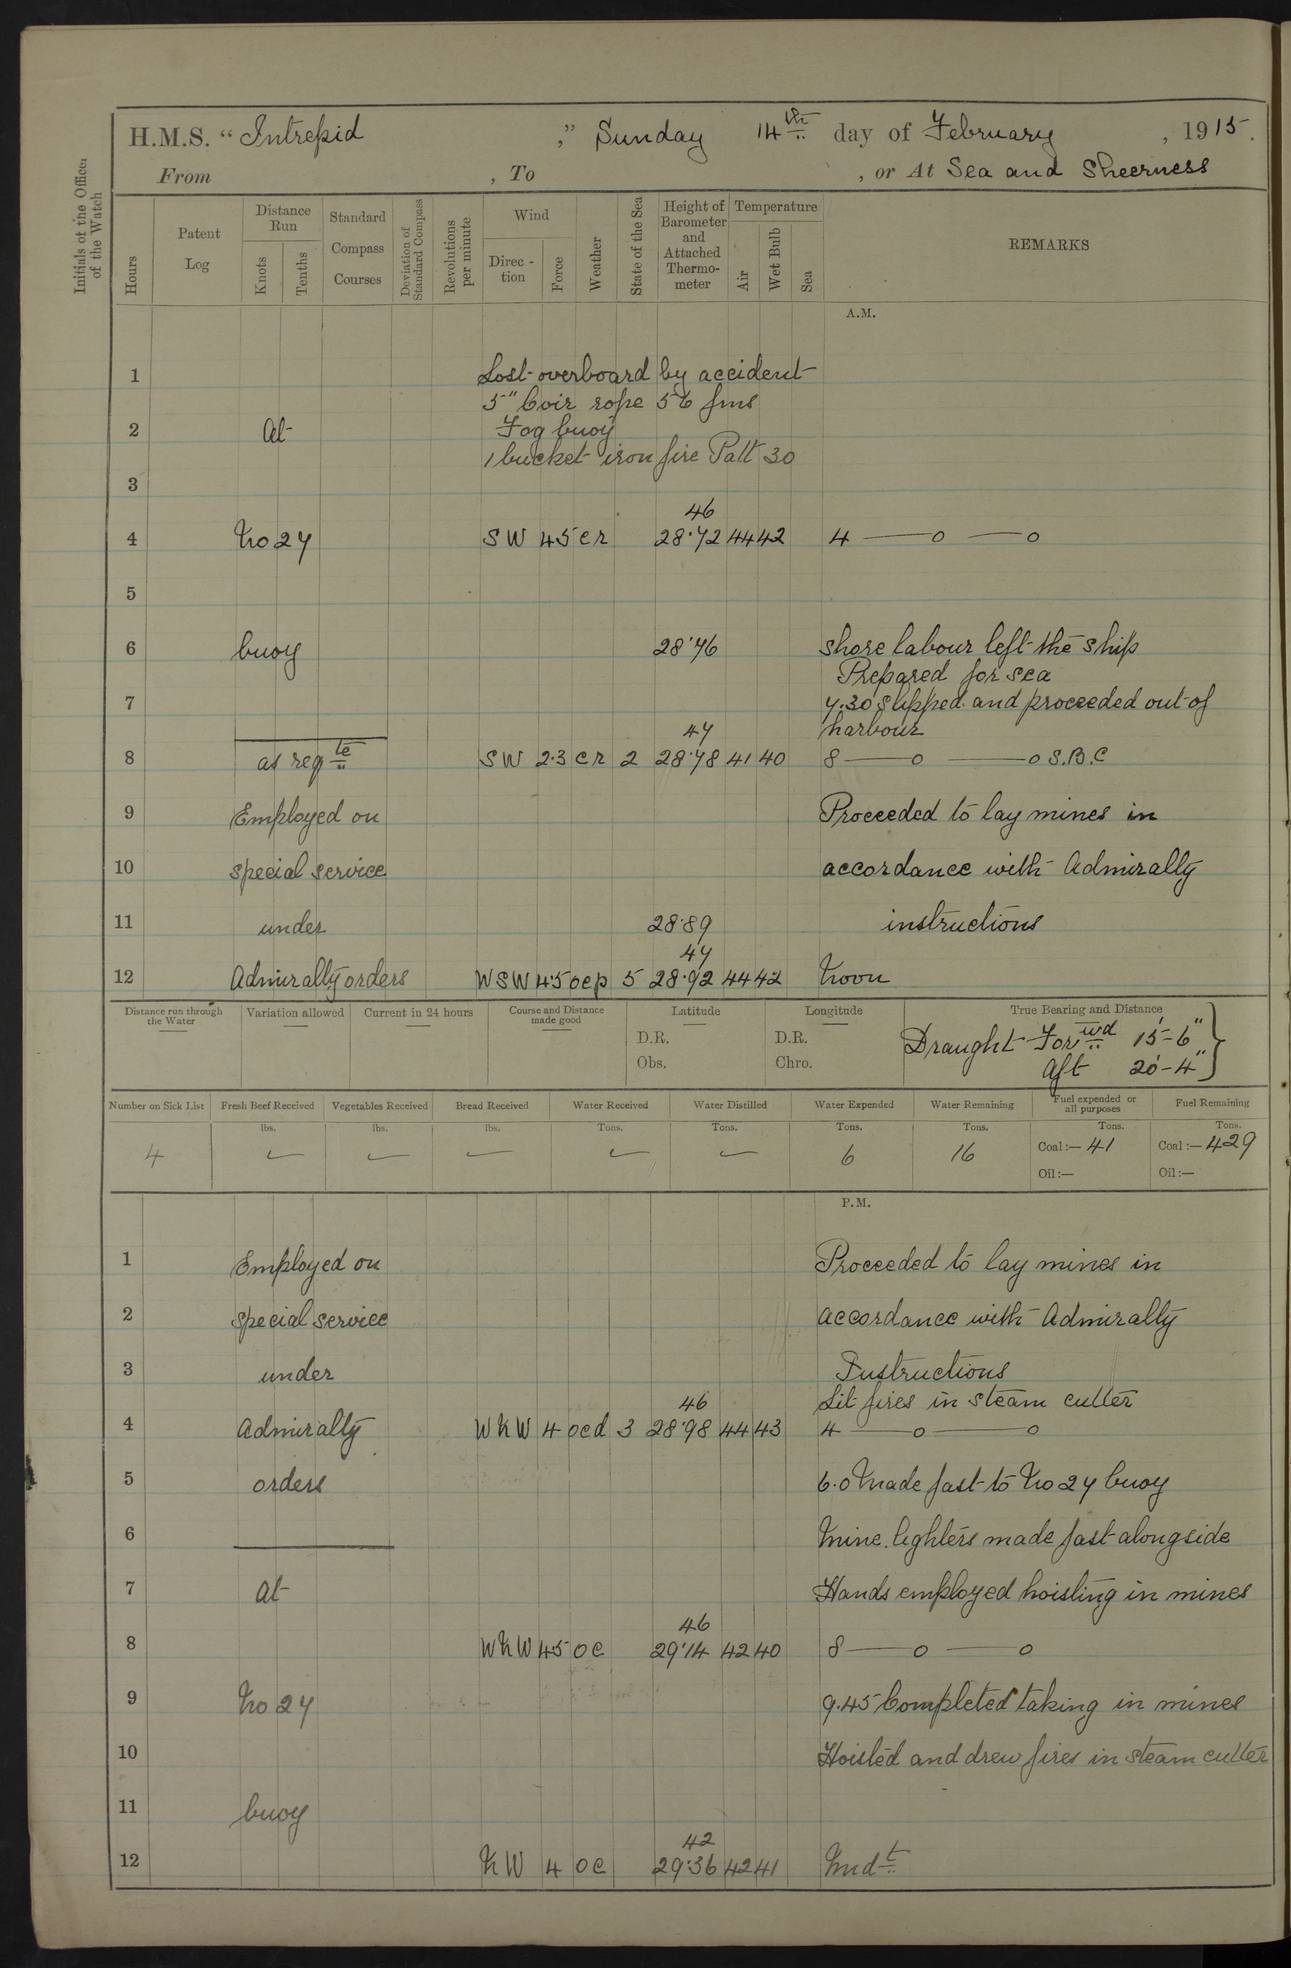 H.M.S. “ Intrepid ,” Sunday 14th day of February , 1915.
From , To , or At Sea and Sheerness
Initials of the Officer of the Watch
Hours
Patent Log
Distance Run
Knots
Tenths
Standard Compass Courses
Deviation of Standard Compass
Revolutions per minute
Wind
Direc-tion
Force
Weather
State of the Sea
Height of Barometer and Attached Thermo-meter
Temperature
Air
Wet Bulb
Sea
REMARKS
A.M.
1 Lost overboard by accident
5" Coir rope 56 fms
2 At Fog buoy
1 bucket iron fire Patt 30
3
46
4 No 27 SW 4.5 cr 28.72 44 42 4 —— o —— o
5
6 buoy 28.76 Shore labour left the ship
Prepared for sea
7 7.30 Slipped and proceeded out of
47 harbour
8 as reqte SW 2.3 cr 2 28.78 41 40 8 —— o —— o S.B.C
9 Employed on Proceeded to lay mines in
10 special service accordance with Admiralty
11 under 28.89 instructions
47
12 Admiralty orders WSW 4.5 ocp 5 28.92 44 42 Noon
Distance run through the Water
Variation allowed
Current in 24 hours
Course and Distance made good
Latitude
D.R.
Obs.
Longitude
D.R.
Chro.
True Bearing and Distance
Draught Forwd 15'-6"
Aft 20'-4"
Number on Sick List
Fresh Beef Received
Vegetables Received
Bread Received
Water Received
Water Distilled
Water Expended
Water Remaining
Fuel expended or all purposes
Fuel Remaining
lbs. lbs. lbs. Tons. Tons. Tons. Tons. Tons. Tons.
4 6 16 Coal:— 41 Coal:— 429
Oil:— Oil:—
P.M.
1 Employed on Proceeded to lay mines in
2 special service accordance with Admiralty
3 under Instructions
46 Lit fires in steam cutter
4 Admiralty WNW 4 ocd 3 28.98 44 43 4 —— o —— o
5 orders 6.0 Made fast to No 27 buoy
6 Mine lighters made fast alongside
7 At Hands employed hoisting in mines
46
8 WNW 4.5 oc 29.14 42 40 8 —— o —— o
9 No 27 9.45 Completed taking in mines
10 Hoisted and drew fires in steam cutter
11 buoy
42
12 NW 4 oc 29.36 42 41 Midt